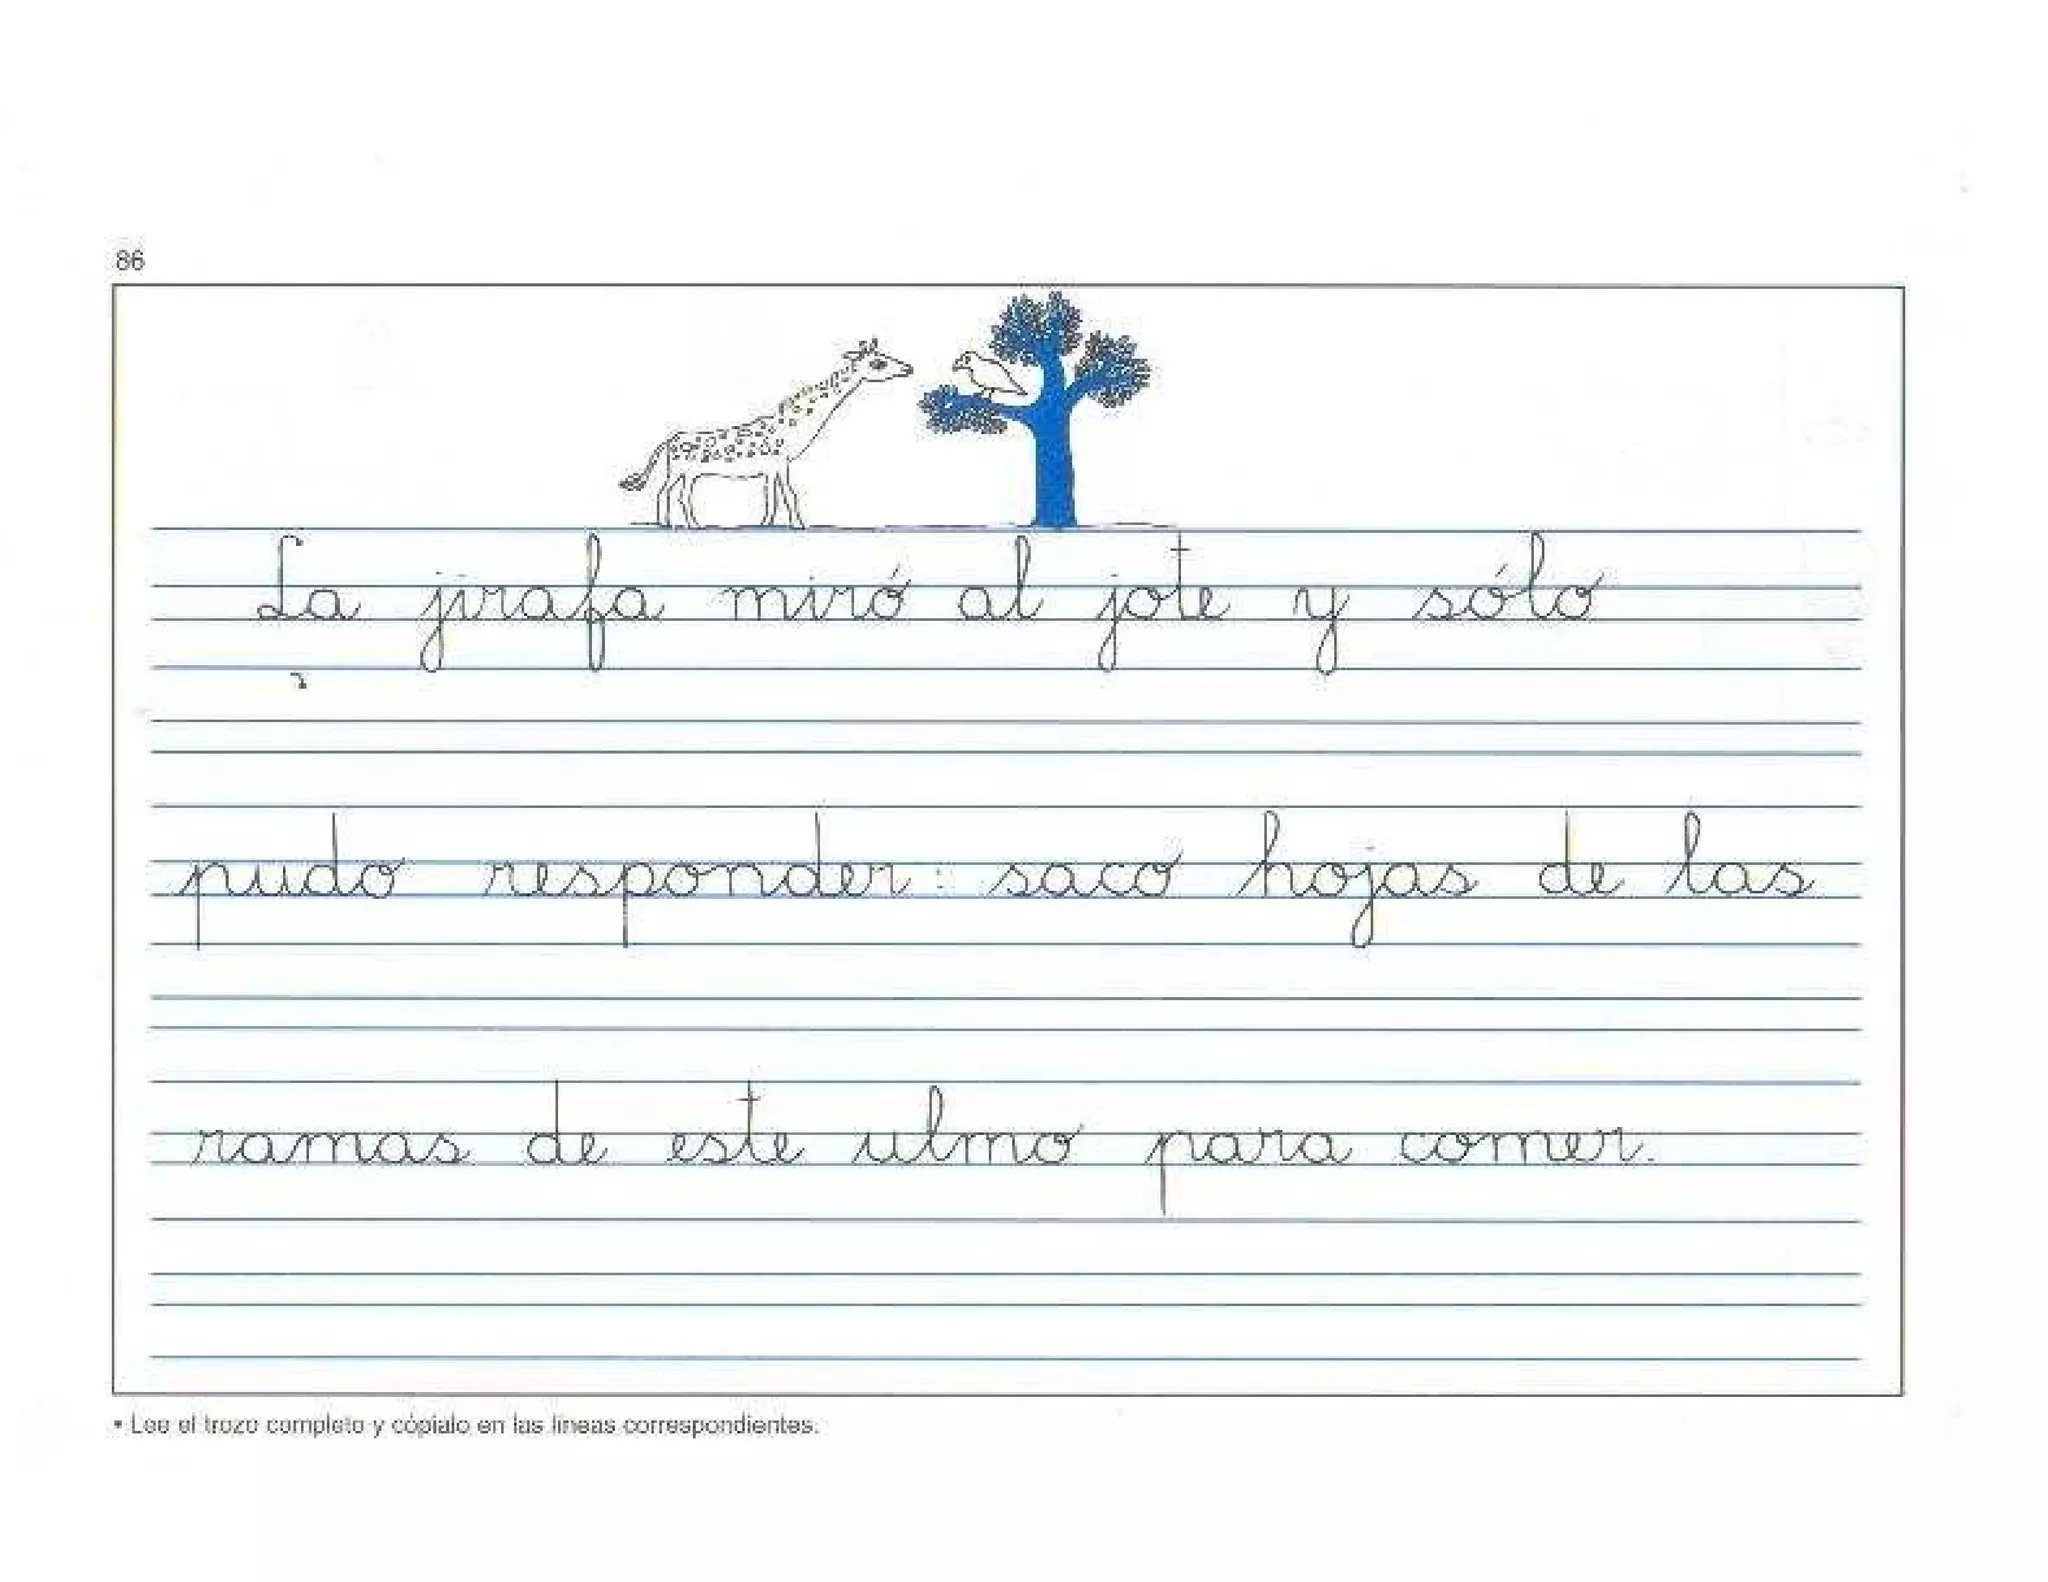 86
La jirafa miró al jote y sólo
pudo responder: saco hojas de las
ramas de este ulmo para comer.
• Lee el trozo completo y cópialo en las líneas correspondientes.